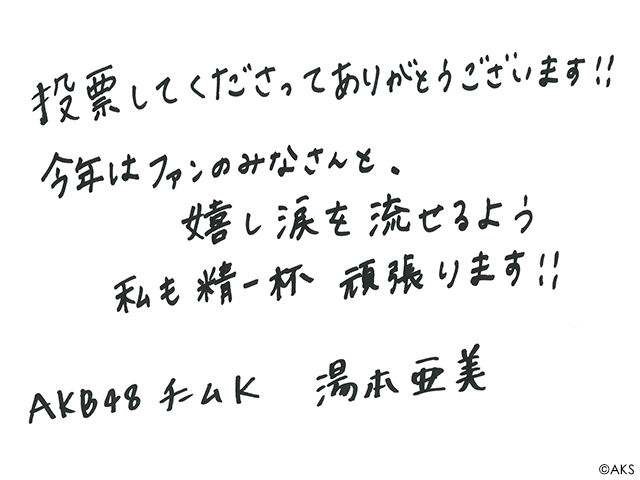 投票してくださってありがとうございます!!
今年はファンのみなさんと、
嬉し涙を流せるよう
私も精一杯 頑張ります!!
AKB48 チームK 湯本亜美
©AKS